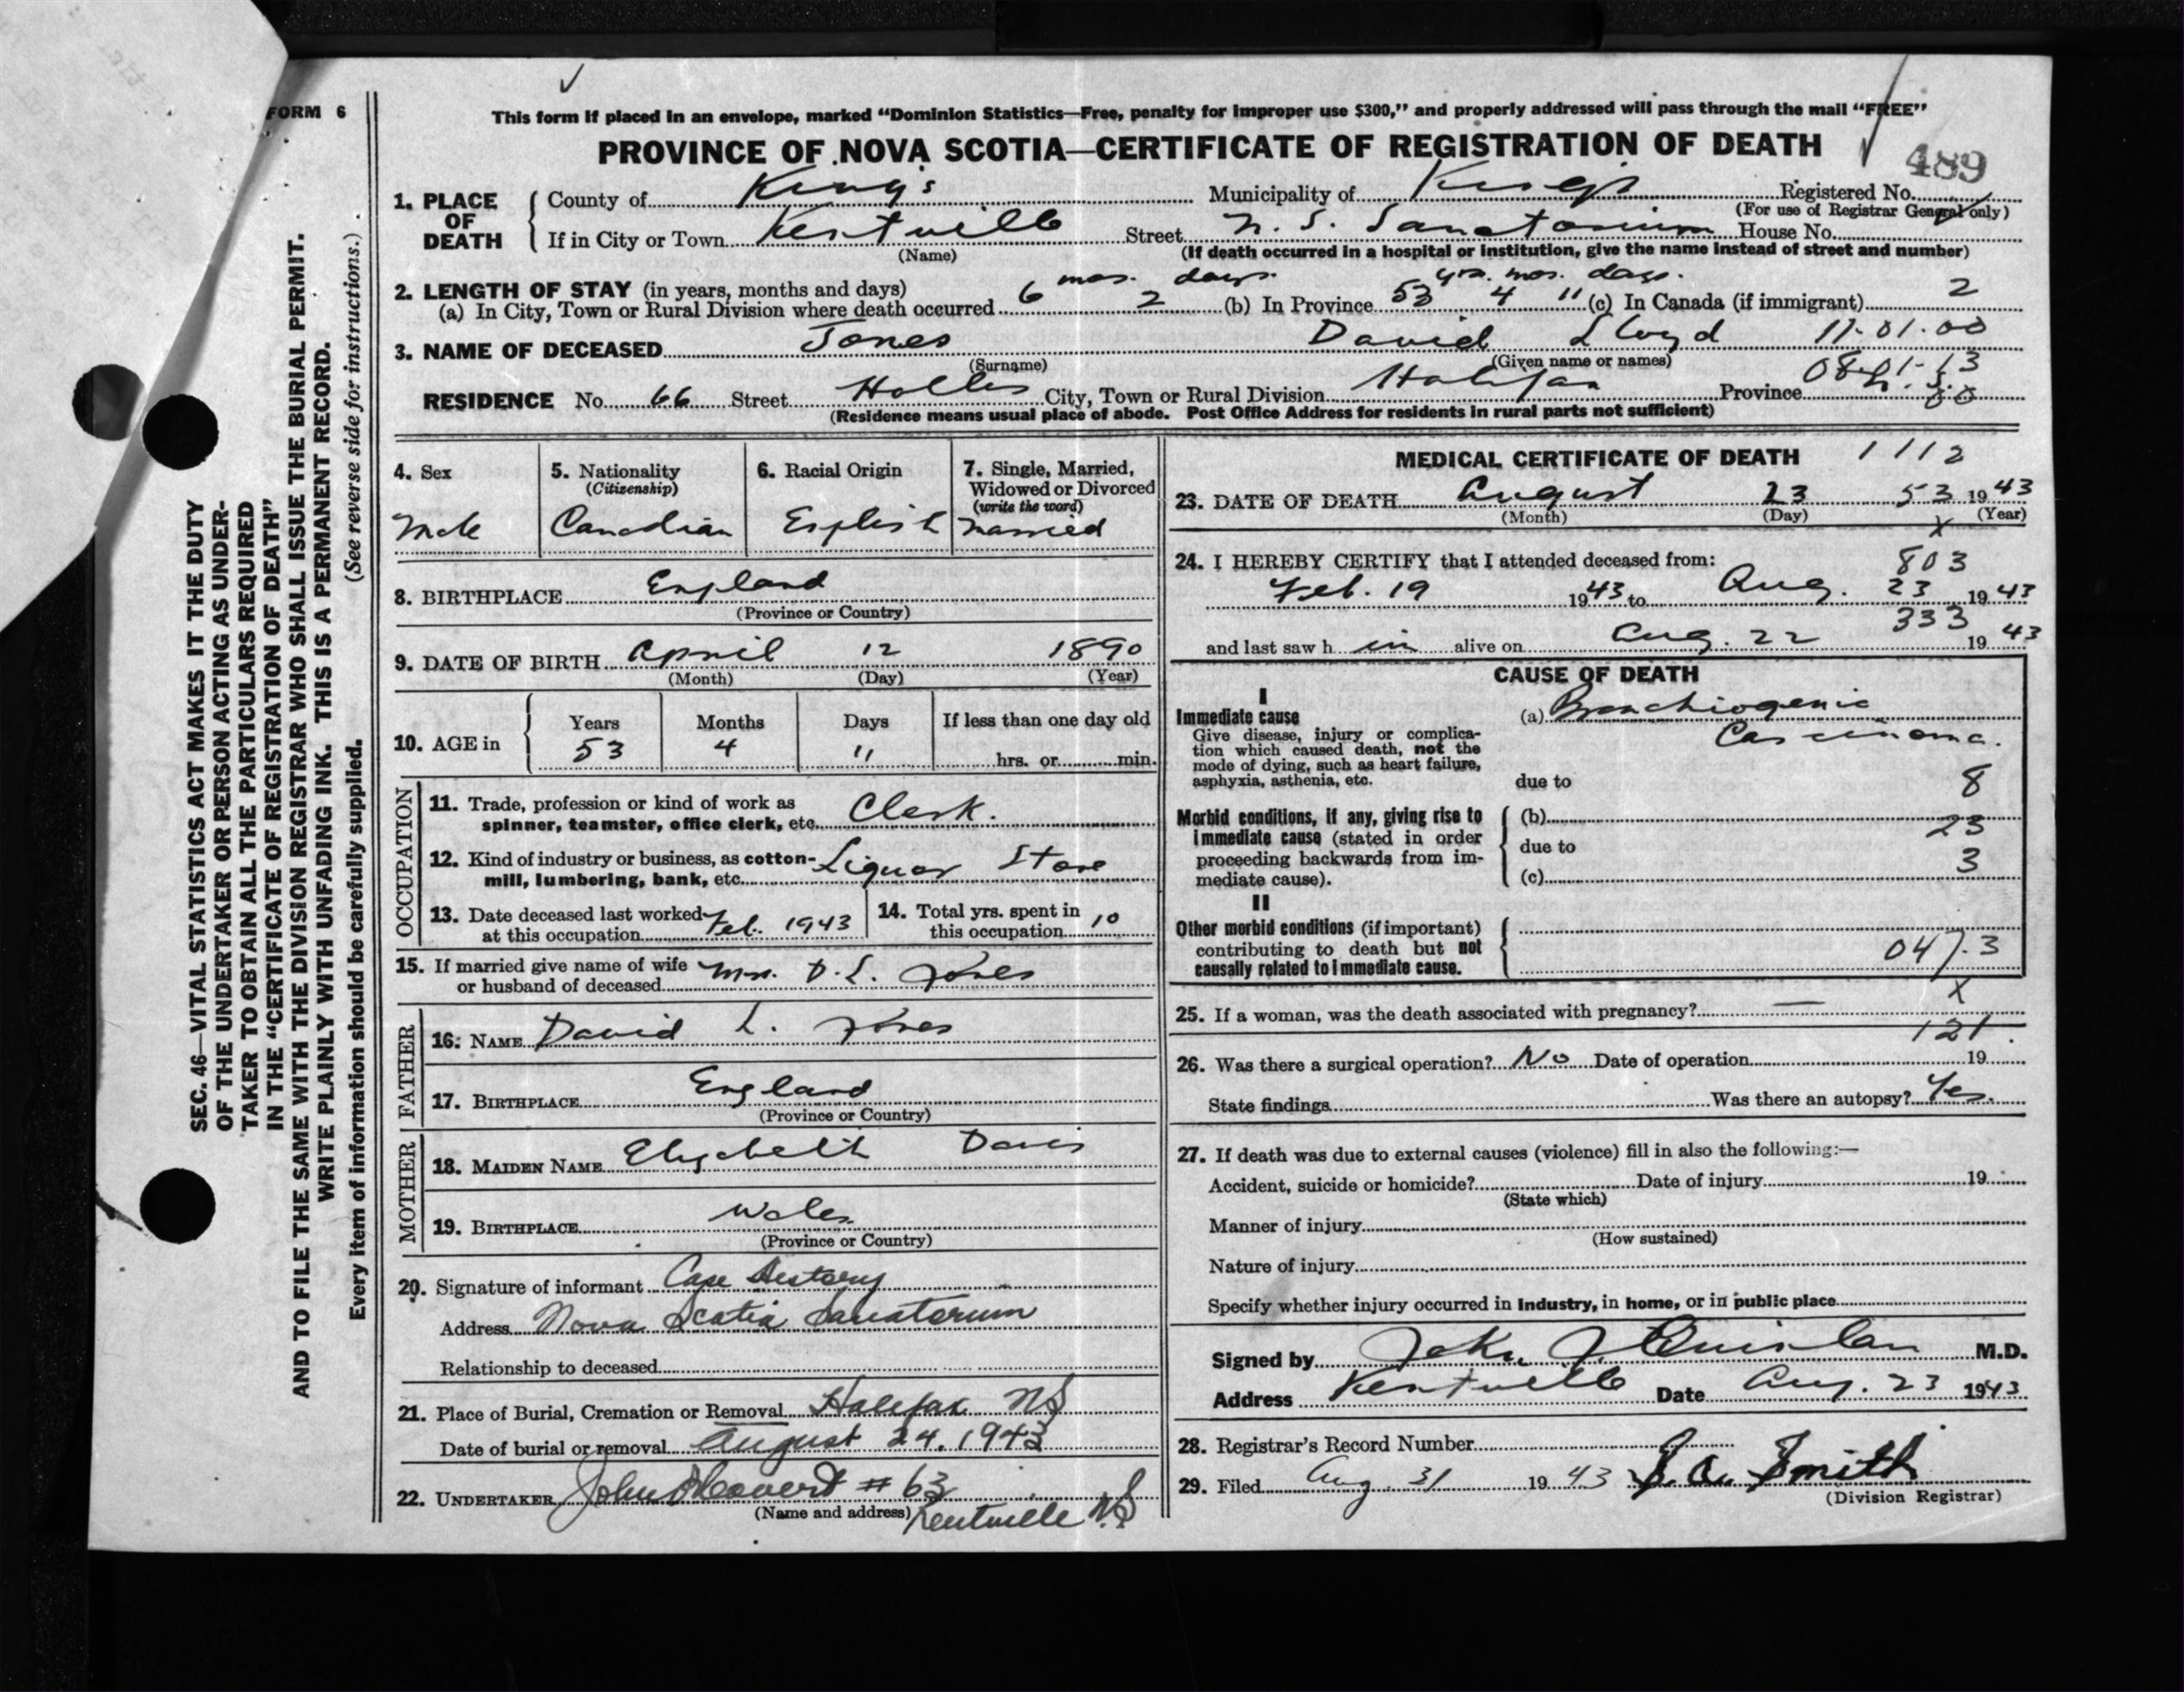 FORM 6
This form if placed in an envelope, marked "Dominion Statistics—Free, penalty for improper use $300," and properly addressed will pass through the mail "FREE"
PROVINCE OF NOVA SCOTIA—CERTIFICATE OF REGISTRATION OF DEATH
489
1. PLACE OF DEATH County of King's Municipality of Kings Registered No.
(For use of Registrar General only)
If in City or Town Kentville Street N. S. Sanatorium House No.
(Name) (If death occurred in a hospital or institution, give the name instead of street and number)
2. LENGTH OF STAY (in years, months and days) mos. days. yrs. mos. days.
(a) In City, Town or Rural Division where death occurred 6 2 (b) In Province 53 4 11 (c) In Canada (if immigrant) 2
3. NAME OF DECEASED Jones David Lloyd 11-01-00
(Surname) (Given name or names) 08-01-13
RESIDENCE No. 66 Street Hollis City, Town or Rural Division Halifax Province N. S. 00
(Residence means usual place of abode. Post Office Address for residents in rural parts not sufficient)
4. Sex Male
5. Nationality (Citizenship) Canadian
6. Racial Origin English
7. Single, Married, Widowed or Divorced (write the word) Married
8. BIRTHPLACE England
(Province or Country)
9. DATE OF BIRTH April 12 1890
(Month) (Day) (Year)
10. AGE in Years Months Days If less than one day old
53 4 11 hrs. or min.
OCCUPATION
11. Trade, profession or kind of work as
spinner, teamster, office clerk, etc. Clerk.
12. Kind of industry or business, as cotton-
mill, lumbering, bank, etc. Liquor Store
13. Date deceased last worked at this occupation Feb. 1943
14. Total yrs. spent in this occupation 10
15. If married give name of wife
or husband of deceased Mrs. D. L. Jones
FATHER
16. NAME David L. Jones
17. BIRTHPLACE England
(Province or Country)
MOTHER
18. MAIDEN NAME Elizabeth Davis
19. BIRTHPLACE Wales
(Province or Country)
20. Signature of informant Case History
Address Nova Scotia Sanatorium
Relationship to deceased
21. Place of Burial, Cremation or Removal Halifax NS
Date of burial or removal August 24, 1943
22. UNDERTAKER John # 63
(Name and address) Kentville NS
MEDICAL CERTIFICATE OF DEATH 1112
23. DATE OF DEATH August 23 53 1943
(Month) (Day) (Year)
x
24. I HEREBY CERTIFY that I attended deceased from: 803
Feb. 19 1943 to Aug. 23 1943
333
and last saw h im alive on Aug. 22 1943
CAUSE OF DEATH
I
Immediate cause (a) Bronchiogenic
Give disease, injury or complica- Carcinoma.
tion which caused death, not the
mode of dying, such as heart failure,
asphyxia, asthenia, etc. due to 8
Morbid conditions, if any, giving rise to (b)
immediate cause (stated in order 23
proceeding backwards from im- due to 3
mediate cause). (c)
II
Other morbid conditions (if important)
contributing to death but not 047.3
causally related to immediate cause.
25. If a woman, was the death associated with pregnancy? — x
121
26. Was there a surgical operation? No Date of operation 19
State findings Was there an autopsy? Yes.
27. If death was due to external causes (violence) fill in also the following:—
Accident, suicide or homicide? Date of injury 19
(State which)
Manner of injury
(How sustained)
Nature of injury
Specify whether injury occurred in industry, in home, or in public place
Signed by John J. Quinlan M.D.
Address Kentville Date Aug. 23 1943
28. Registrar's Record Number
29. Filed Aug. 31 1943 Smith
(Division Registrar)
SEC. 46—VITAL STATISTICS ACT MAKES IT THE DUTY
OF THE UNDERTAKER OR PERSON ACTING AS UNDER-
TAKER TO OBTAIN ALL THE PARTICULARS REQUIRED
IN THE "CERTIFICATE OF REGISTRATION OF DEATH"
AND TO FILE THE SAME WITH THE DIVISION REGISTRAR WHO SHALL ISSUE THE BURIAL PERMIT.
WRITE PLAINLY WITH UNFADING INK. THIS IS A PERMANENT RECORD.
Every item of information should be carefully supplied. (See reverse side for instructions.)